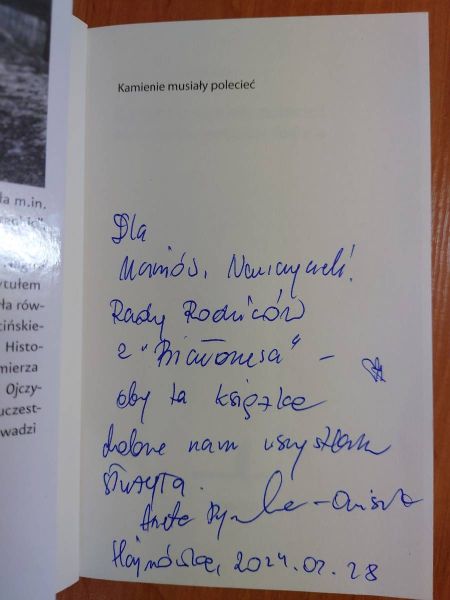 ła m.in.
ytułem
ła rów-
cińskie-
Histo-
mierza
Ojczy-
uczest-
wadzi
Kamienie musiały polecieć
Dla
Uczniów, Nauczycieli,
Rady Rodziców
z
aby ta książka
dobrze nam wszystkim
służyła.
Aneta Prymaka-Oniszk
Hajnówka, 2024.02.28